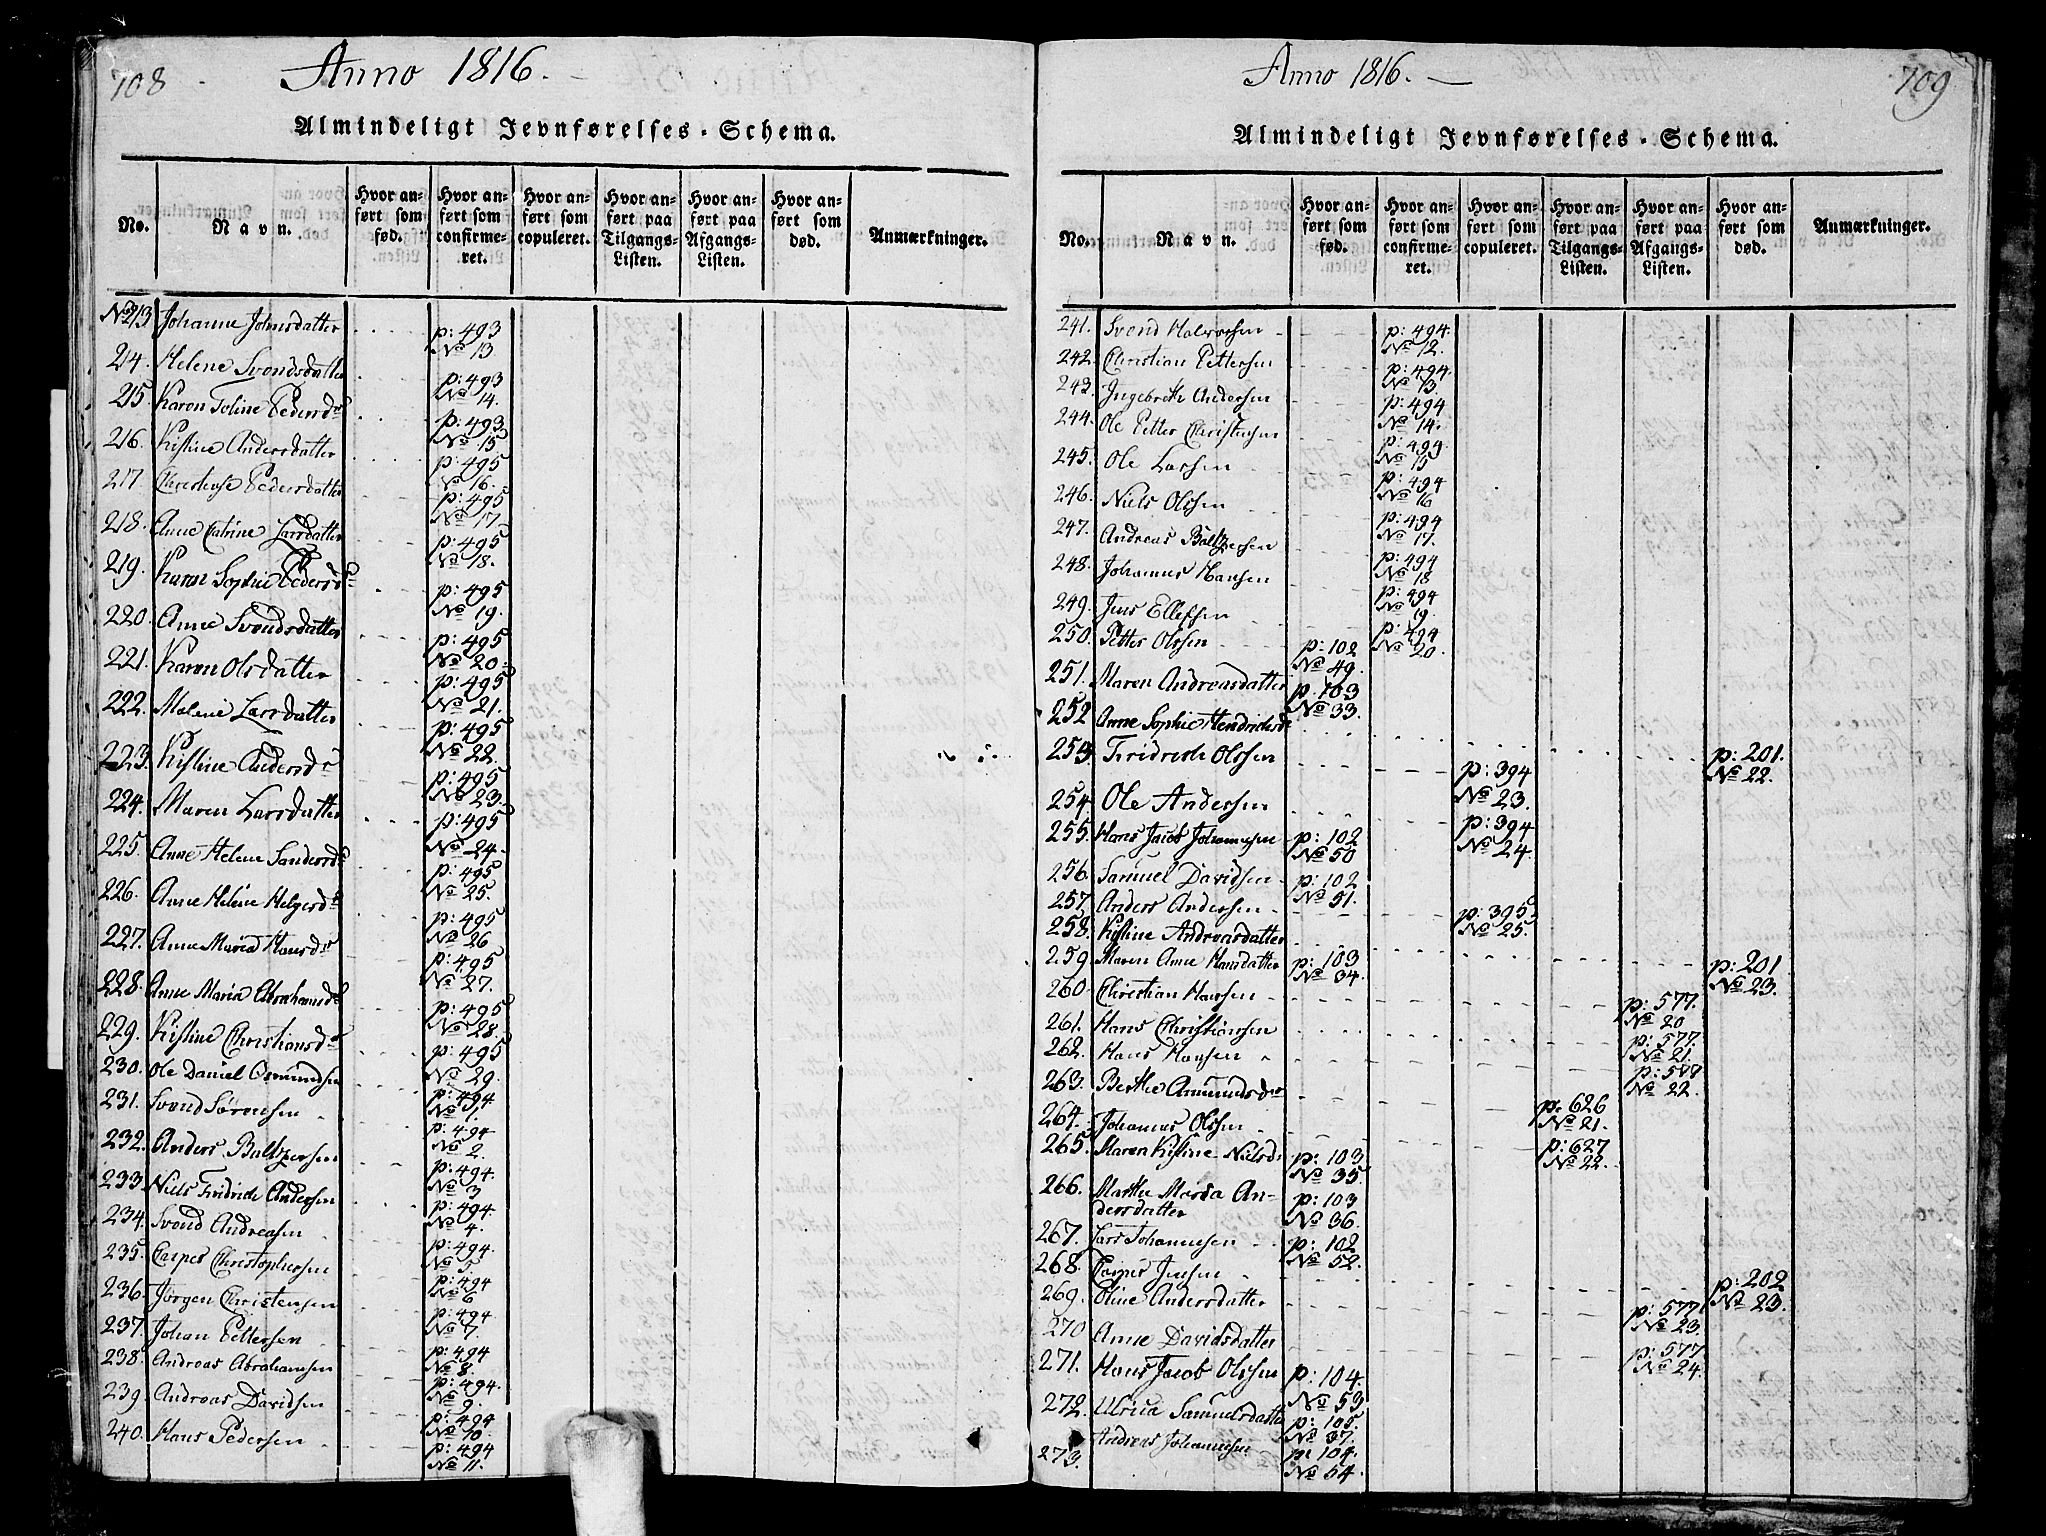 708
Anno 1816.
Almindeligt Jevnførelses-Schema.
No. Navn. Hvor anført som fød. Hvor anført som confirmeret. Hvor anført som copuleret. Hvor anført paa Tilgangs-Listen. Hvor anført paa Afgangs-Listen. Hvor anført som død. Anmærkninger.
No 213 Johanne Johnsdatter p: 493 No 13
214. Helene Svendsdatter p: 493 No 14.
215. Karen Toline Pedersdr p: 493 No 15
216. Kistine Andersdatter p: 495 No 16.
217. Christense Pedersdatter p: 495 No 17.
218. Anne Catrine Larsdatter p: 495 No 18.
219. Karen Sophie Pedersdr p: 495 No 19.
220. Anne Svendsdatter p: 495 No 20.
221. Karen Olsdatter p: 495 No 21.
222. Malene Larsdatter p: 495 No 22.
223. Kistine Andersdr p: 495 No 23.
224. Maren Larsdatter p: 495 No 24.
225. Anne Helene Sandersdr p: 495 No 25.
226. Anne Helene Helgesdr p: 495 No 26
227. Anne Maria Hansdr p: 495 No 27.
228. Anne Maria Abrahamsdr p: 495 No 28
229. Kistine Christiansdr p: 495 No 29.
230. Ole Daniel Osmundsen p: 494 No 1.
231. Svend Sørensen p: 494 No 2.
232. Anders Baltzersen p: 494. No 3
233. Niels Fridrich Andersen p: 494. No 4.
234. Svend Andreasen p: 494. No 5.
235. Casper Christophersen p: 494 No 6
236. Jørgen Christensen p: 494 No 7.
237. Johan Pettersen p: 494 No 8.
238. Andreas Abrahamsen p: 494. No 9.
239. Andreas Davidsen p: 494 No 10.
240. Hans Pedersen p: 494 No 11.
709
Anno 1816.
Almindeligt Jevnførelses-Schema.
No. Navn. Hvor anført som fød. Hvor anført som confirmeret. Hvor anført som copuleret. Hvor anført paa Tilgangs-Listen. Hvor anført paa Afgangs-Listen. Hvor anført som død. Anmærkninger.
241. Svend Halvorsen p: 494. No 12.
242. Christian Pettersen p: 494. No 13.
243. Ingebreth Andersen p: 494 No 14.
244. Ole Petter Christensen p: 494 No 15
245. Ole Larsen p: 494 No 16
246. Niels Olssen p: 494 No 17.
247. Andreas Baltzersen p: 494 No 18
248. Johannes Hansen p: 494 No 19.
249. Jens Ellefsen p: 494 No 20.
250. Petter Olssen p: 102 No 49.
251. Maren Andreasdatter p. 103 No 33.
252 Anne Sophie Hendrichsdr p: 201. No 22.
253. Fridrich Olssen p: 394 No 23.
254. Ole Andersen p: 394 No 24.
255. Hans Jacob Johannesen p: 102 No 50
256. Samuel Davidsen p: 102 No 51.
257. Anders Andersen p: 395. No 25.
258. Kistine Andreasdatter p: 201 No 23.
259. Maren Anne Hansdatter p: 103 No 34.
260. Christian Hansen p: 577. No 20
261. Hans Christiansen p: 577. No 21.
262. Hans Hansen p: 577 No 22.
263. Berthe Amundsdr p. 626 No 21.
264. Johannes Olssen p: 627 No 22.
265. Maren Kistine Nielsdr p: 103 No 35.
266. Marthe Maria An-
dersdatter p: 103 No 36.
267. Lars Johannesen p: 102 No 52.
268. Casper Jensen p: 202 No 23.
269. Oline Andersdatter p: 577 No 23.
270 Anne Davidsdatter p: 577 No 24.
271. Hans Jacob Olssen p: 104. No 53
272. Ulrica Samuelsdatter p: 105 No 37.
273. Andreas Johannesen p: 104. No 54.